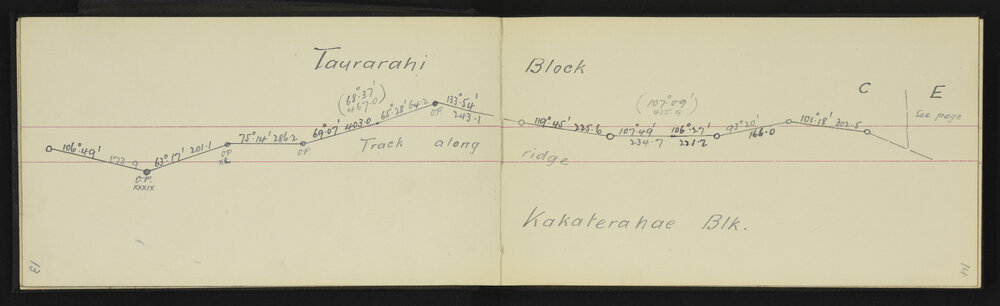 Taurarahi Block
C E
See page
(68°·37'
467·0)
(107°·09'
455·9)
106°·49' 173·9
63°·17' 201·1
75°·14' 286·2
69°·07' 403·0
65°·28' 64·2
133°·54'
243·1
119°·45' 225·6
107°·49'
234·7
106°·27'
221·2
93°·20'
166·0
101°·18' 302·5
O.P.
XXXIX
O.P.
XL
O.P.
O.P.
Track along ridge
Kakaterahae Blk.
13
14